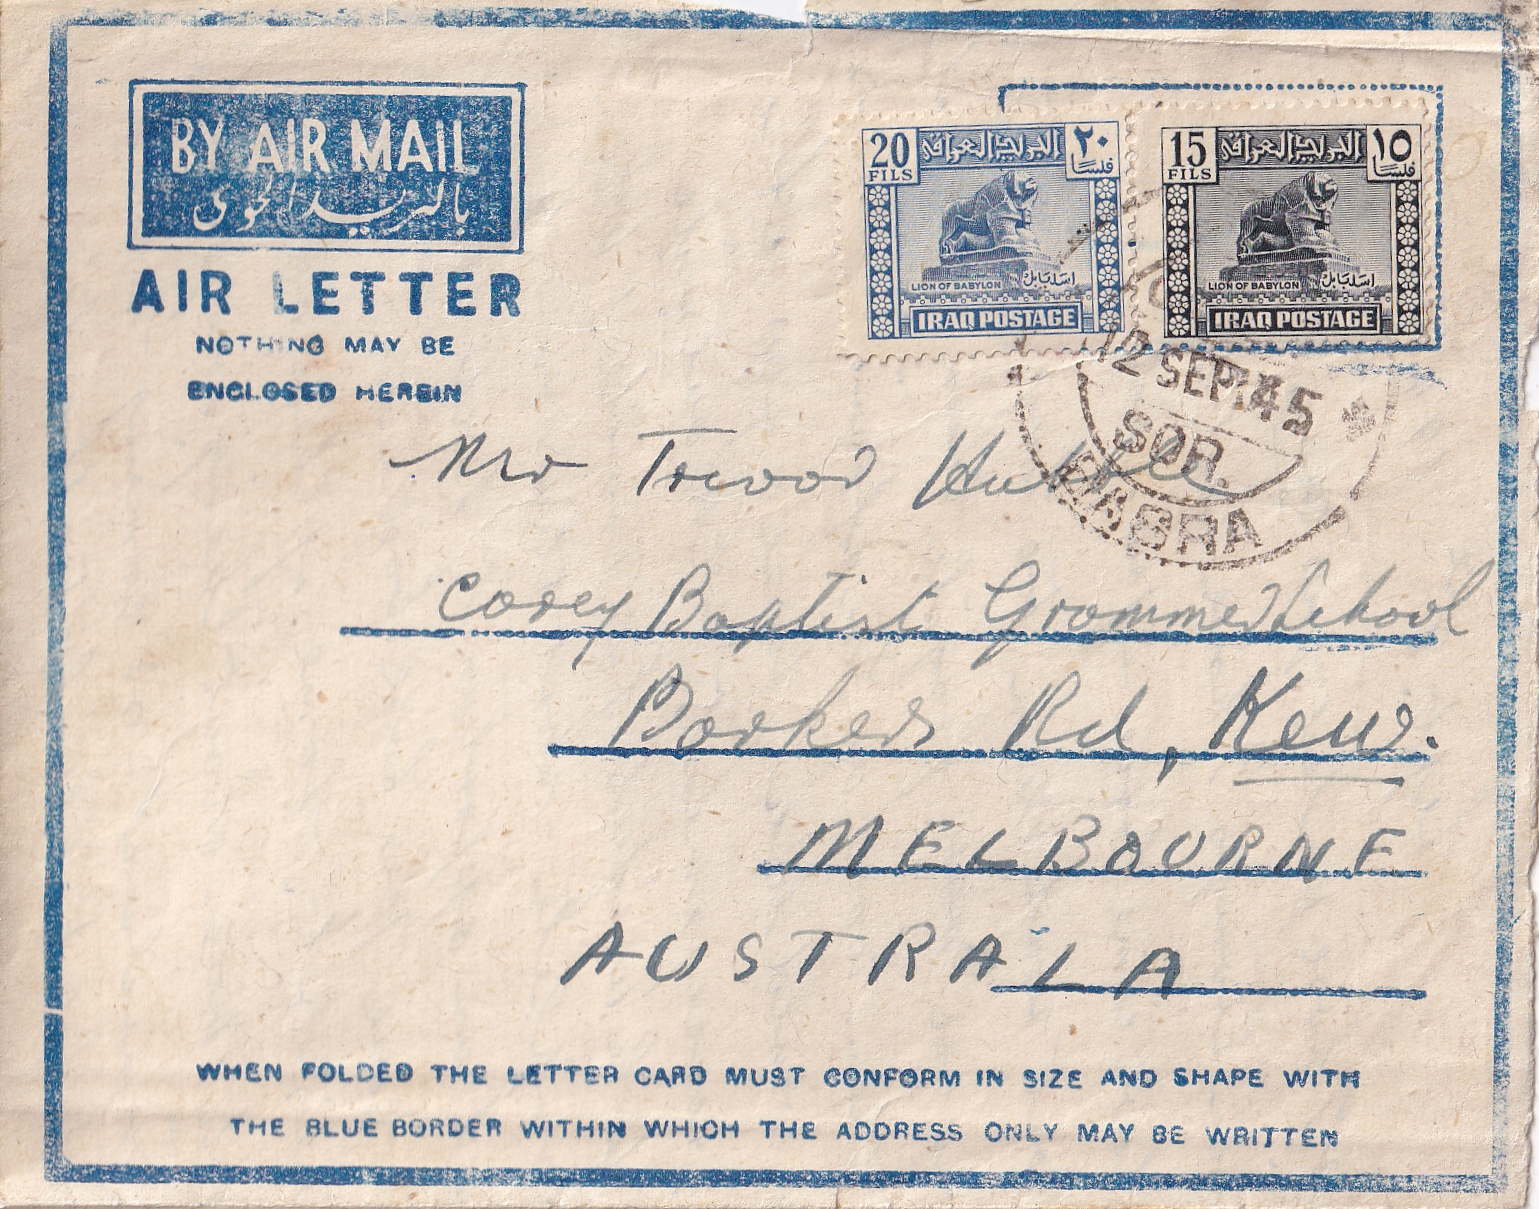 BY AIR MAIL
بالبريد الجوى
AIR LETTER
NOTHING MAY BE
ENCLOSED HEREIN
20 FILS
البريد العراقي
٢٠ فلسًا
LION OF BABYLON
اسد بابل
IRAQ POSTAGE
15 FILS
البريد العراقي
١٥ فلسًا
LION OF BABYLON
اسد بابل
IRAQ POSTAGE
12 SEP 45
SOR.
BASRA
Mr Trevor
Carey Baptist Grammer School
Barkers Rd, Kew.
MELBOURNE
AUSTRALA
WHEN FOLDED THE LETTER CARD MUST CONFORM IN SIZE AND SHAPE WITH
THE BLUE BORDER WITHIN WHICH THE ADDRESS ONLY MAY BE WRITTEN